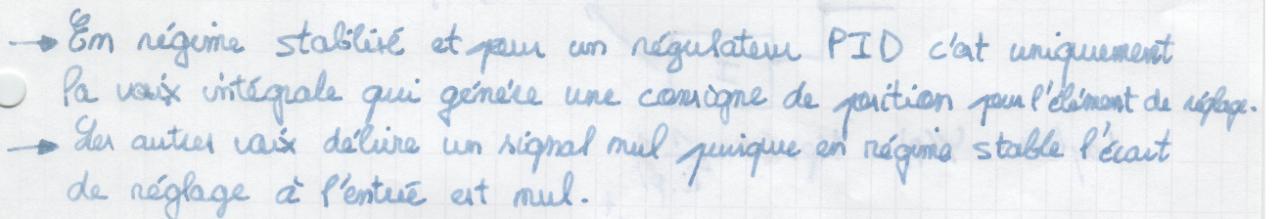 → En régime stabilisé et pour un régulateur PID c'est uniquement
la voix intégrale qui génère une consigne de position pour l'élément de réglage.
→ Les autres voix délivre un signal nul puisque en régime stable l'écart
de réglage à l'entrée est nul.